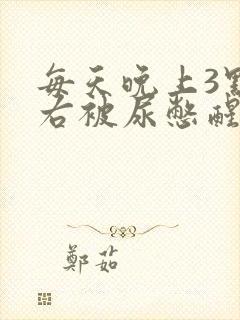 每天晚上3點
右被尿憋醒
鄭茹